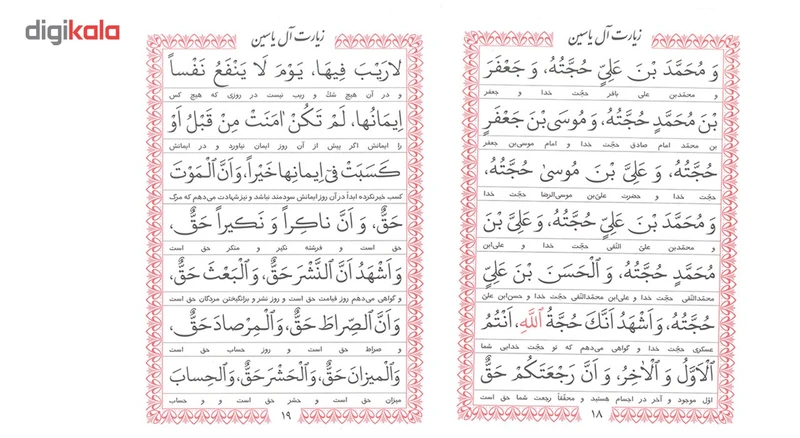 digikala
زیارت آل یاسین
وَ مُحَمَّدَ بْنَ عَلِيٍّ حُجَّتُهُ، وَ جَعْفَرَ
و محمّدبن علی باقر حجّت خدا و جعفر
بْنَ مُحَمَّدٍ حُجَّتُهُ، وَ مُوسَى بْنَ جَعْفَرٍ
بن محمّد امام صادق حجّت خدا و امام موسی‌بن جعفر
حُجَّتُهُ، وَ عَلِيَّ بْنَ مُوسىٰ حُجَّتُهُ،
حجّت خدا و حضرت علی‌بن موسی‌الرضا حجّت خدا
وَ مُحَمَّدَ بْنَ عَلِيٍّ حُجَّتُهُ، وَ عَلِيَّ بْنَ
و محمّدبن علیّ التّقی حجّت خدا و علی‌ابن
مُحَمَّدٍ حُجَّتُهُ، وَ الْحَسَنَ بْنَ عَلِيٍّ
محمّدالنّقی حجّت خدا و علی‌ابن محمّدالنّقی حجّت خدا و حسن‌ابن علیّ
حُجَّتُهُ، وَ اَشْهَدُ اَنَّكَ حُجَّةُ اللهِ، اَنْتُمُ
عسکری حجّت خدا و گواهی می‌دهم که تو حجّت خدایی شما
الْاَوَّلُ وَ الْاٰخِرُ، وَ اَنَّ رَجْعَتَكُمْ حَقٌّ
اوّل موجود و آخر در اجسام هستید و محقّقاً رجعت شما حق است
۱۸
زیارت آل یاسین
لارَيْبَ فِيهَا، يَوْمَ لَا يَنْفَعُ نَفْساً
و در آن هیچ شکّ و ریب نیست در روزی که هیچ کس
اِيمَانُها، لَمْ تَكُنْ اٰمَنَتْ مِنْ قَبْلُ اَوْ
را ایمانش اگر پیش از آن روز ایمان نیاورد و در ایمانش
كَسَبَتْ فِى اِيمانِها خَيْراً، وَ اَنَّ الْمَوْتَ
کسب خیر نکرده ابداً در آن روز ایمانش سودمند نباشد و نیز شهادت می‌دهم که مرگ
حَقٌّ، وَ اَنَّ ناكِراً وَ نَكيراً حَقٌّ،
حق است و فرشته نکیر و منکر حق است
وَ اَشْهَدُ اَنَّ النَّشْرَ حَقٌّ، وَ الْبَعْثَ حَقٌّ،
و گواهی می‌دهم روز قیامت حق است و روز نشر و برانگیختن مردگان حق است
وَ اَنَّ الصِّراطَ حَقٌّ، وَ الْمِرْصادَ حَقٌّ،
و صراط حق است و روز حساب حق است
وَ الْميزانَ حَقٌّ، وَ الْحَشْرَ حَقٌّ، وَ الْحِسابَ
میزان حق است و حشر حق است و حساب
۱۹